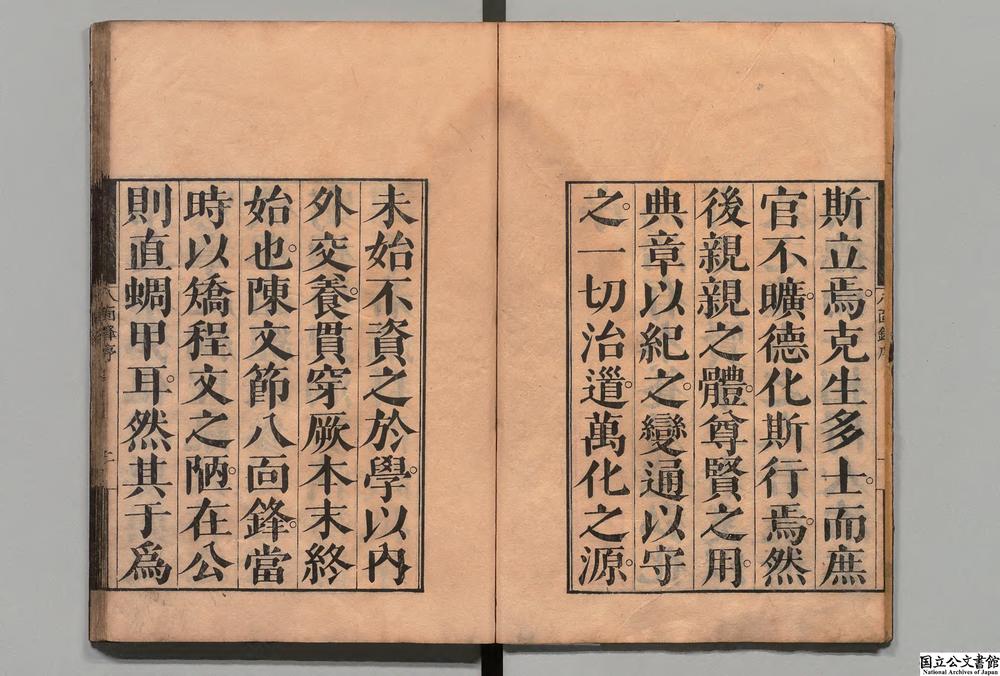 斯立焉。克生多士。而庶
官不曠。德化斯行焉。然
後親親之體。尊賢之用。
典章以紀之。變通以守
之。一切治道。萬化之源。
未始不資之於學。以内
外交養。貫穿厥本末終
始也。陳文節八面鋒。當
時以矯程文之陋。在公
則直蜩甲耳。然其于爲
八面鋒序
国立公文書館
National Archives of Japan